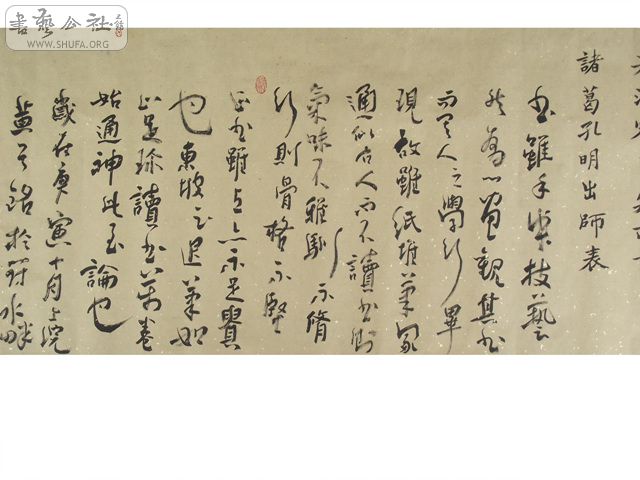 書藝公社
WWW.SHUFA.ORG
諸葛孔明出師表
書雖手 技藝
然為心畫觀其書
而 人之學行畢
現故雖紙堆筆冢
通 古人而不讀書則
氣味不雅馴不脩
行則骨格不堅
正書雖 亦不足
也東坡云退筆如
山足珍讀書萬卷
始通神此至論也
歲在庚寅十月上浣
於 水畔